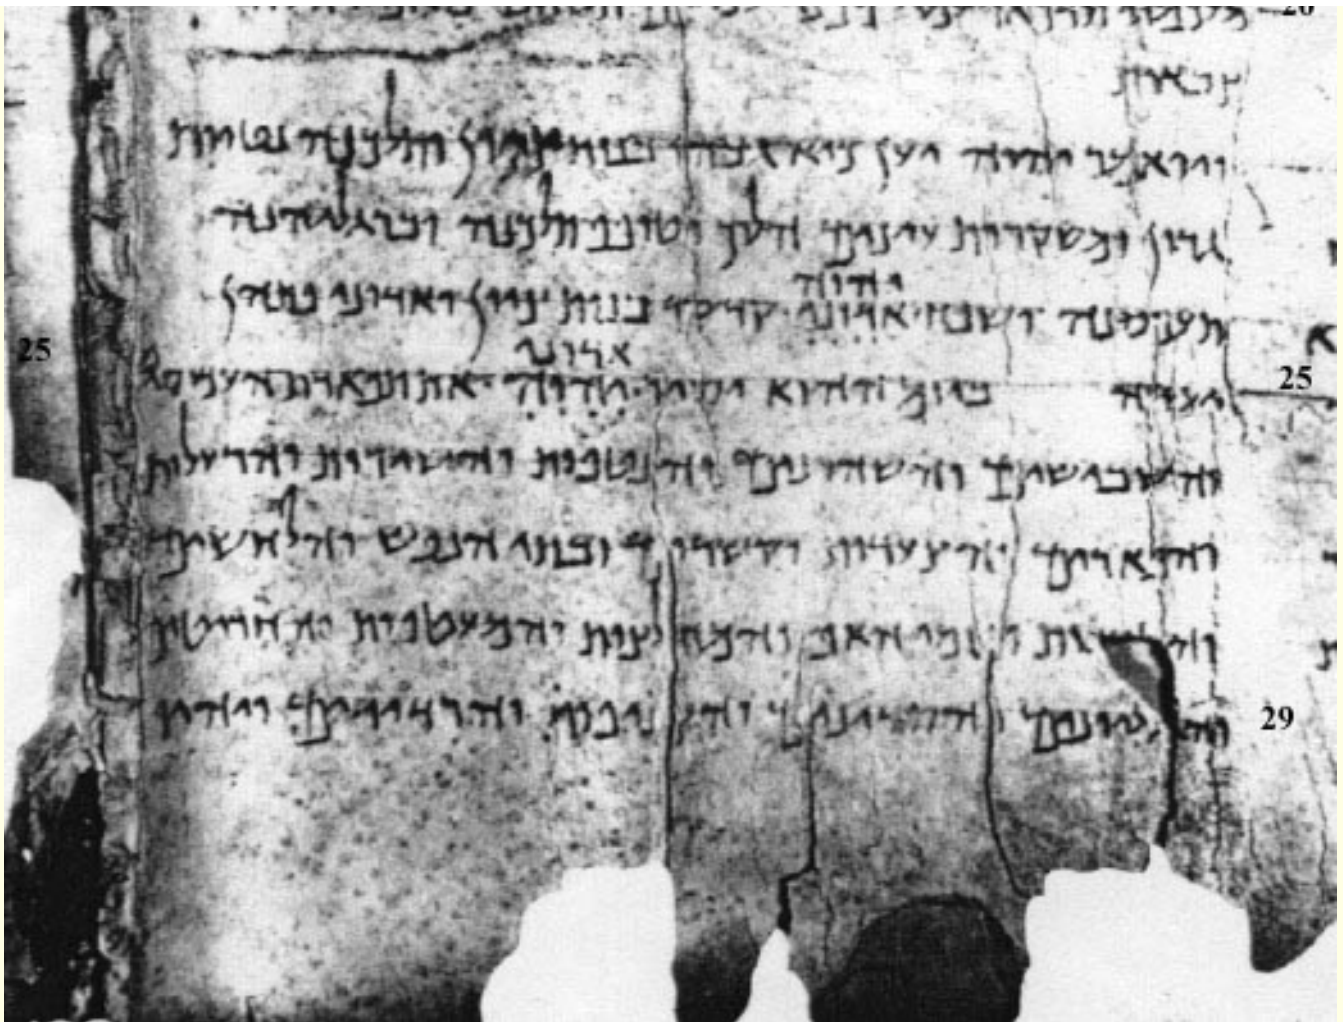 צבאות
ויואמר יהוה יען כיא גבהו בנות ציון ותלכנה נטוות
גרון ומשקרות עיניהם הלוך וטופף תלכנה וברגליהנה
יהוה
תעכסנה ושפח אדוני קדקד בנות ציון ואדוני פתהן
אדוני
יערה ביום ההוא יסיר יהוה את תפארת העכסים
והשבישים והשהרנים והנטפות והשירות והרעלות
והפארים והצעדות וקשרים ובתי הנפש והלחשים
ונזמי האף והמחלצות והמעטפות והחריטים
והגליונים והסדינים והצניפות והרדידים ויהיו
25
25
29